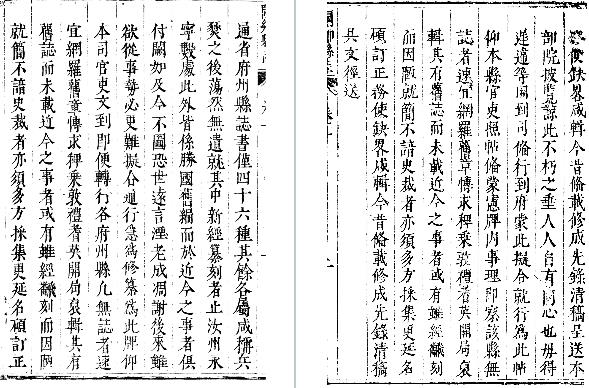 通者府州縣誌書僅四十六種其餘各屬咸稱兵
燹之後蕩然無遺就其中新經纂刻者止汝州永
寧數處此外皆係勝國舊編而於近今之事者俱
付闕如及今不圖恐世遠言湮老成凋謝後來雖
欲從事勢必更難提合通行急為修纂為此牌仰
本司官吏文到即便轉行各府州縣凡無誌者速
宜網羅舊章傳求稗乘敦禮耆英開局裒輯其有
舊誌而未載近今之事者或有雖經鐫刻而因陋
就簡不諳史裁者亦須多方採集更延名碩訂正
務使缺畧咸輯今昔備載修成先錄清稿呈送本
部院披覽諒此不朽之垂人人自有同心也毋得
遲違等因到司備行到府蒙此擬合就行為此帖
仰本縣官吏照帖備蒙憲牌內事理即察該縣無
誌者速宜網羅舊章傳求稗乘敦禮耆英開局裒
輯其有舊誌而未載近今之事者或有雖經鐫刻
而因陋就簡不諳史裁者亦須多方採集更延名
碩訂正務使缺畧咸輯今昔備載修成先錄清稿
具文徑送